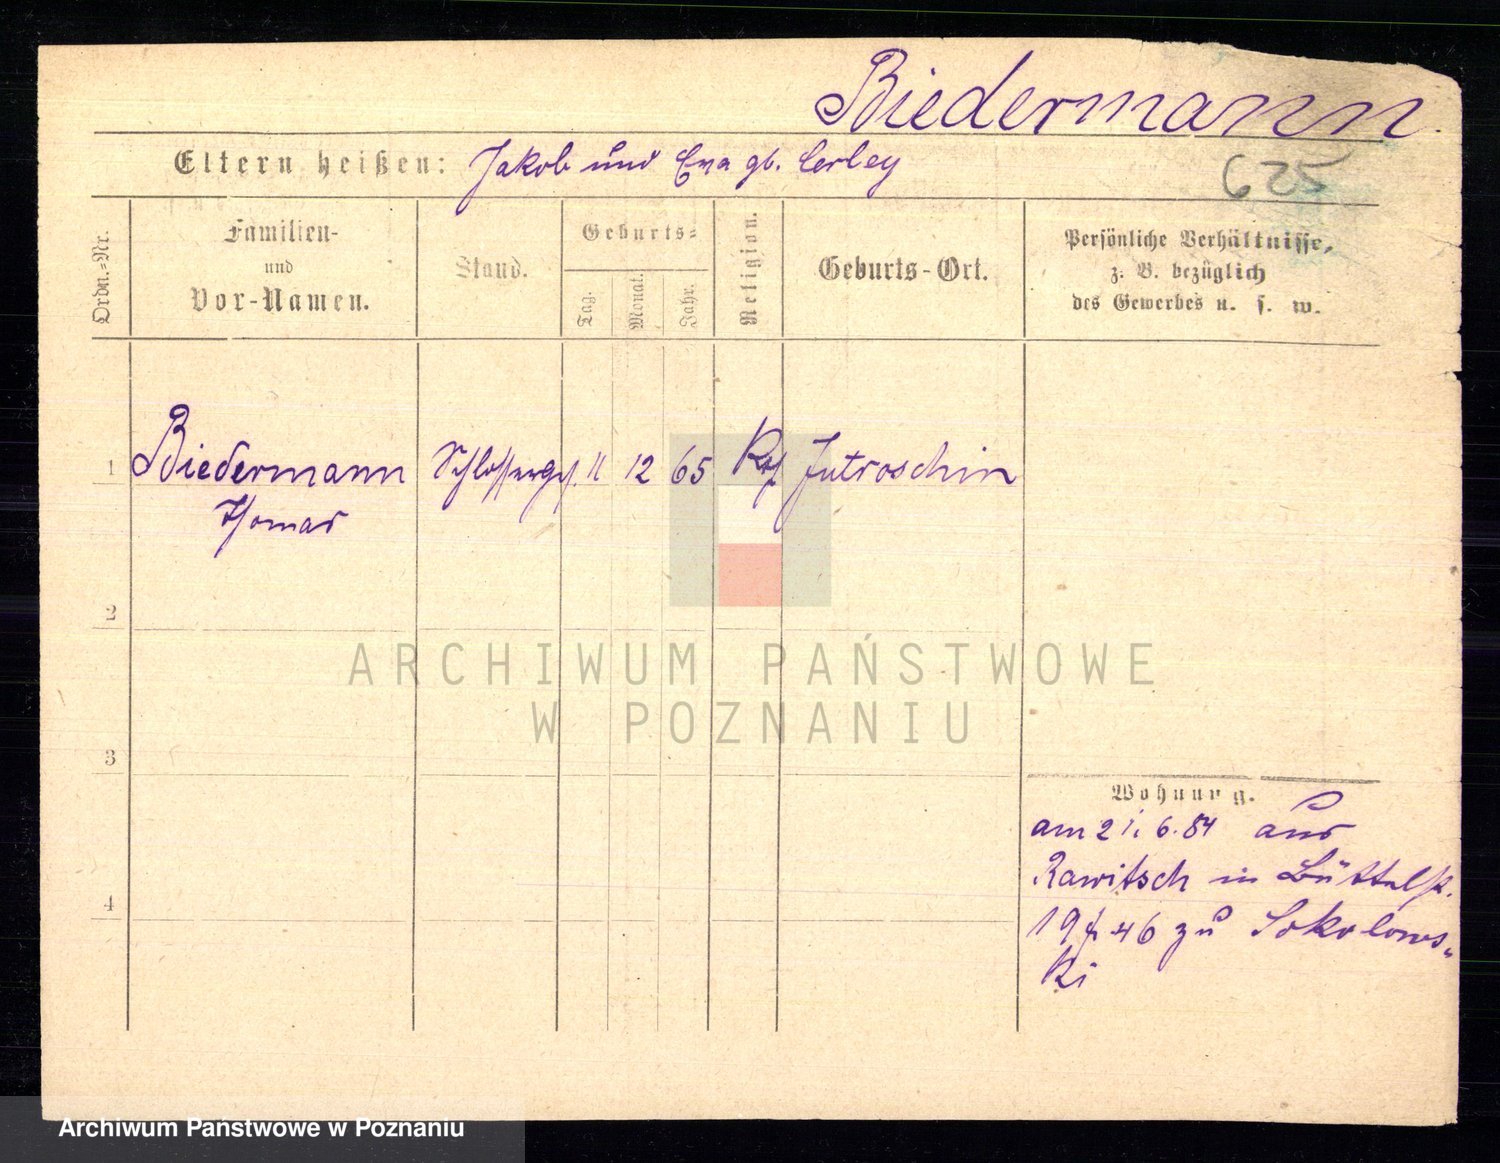 Biedermann
Eltern heißen: Jakob und Eva gb. Cerley
625
Ordn.-Nr.
Familien-
und
Vor-Namen.
Stand.
Geburts-
Tag.
Monat.
Jahr.
Religion.
Geburts-Ort.
Persönliche Verhältnisse,
z. B. bezüglich
des Gewerbes u. s. w.
1 Biedermann Schlosserges. 11 12 65 Jutroschin
Thomas
2
ARCHIWUM PAŃSTWOWE
W POZNANIU
3
Wohnung.
am 21. 6. 84 aus
Rawitsch in Büttelst.
4
zu Sokolows-
ki
Archiwum Państwowe w Poznaniu